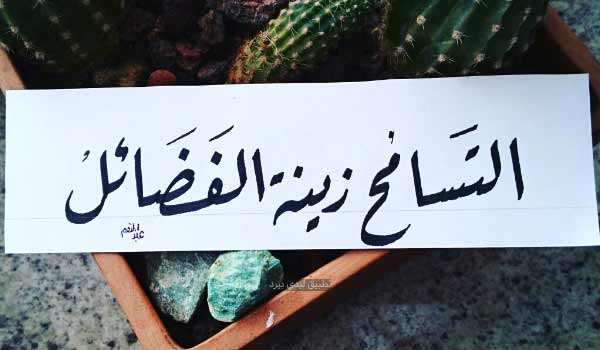 التَسَامح زينة الفَضَائلْ
عبد المنعم
تطبيق ليدي بيرد